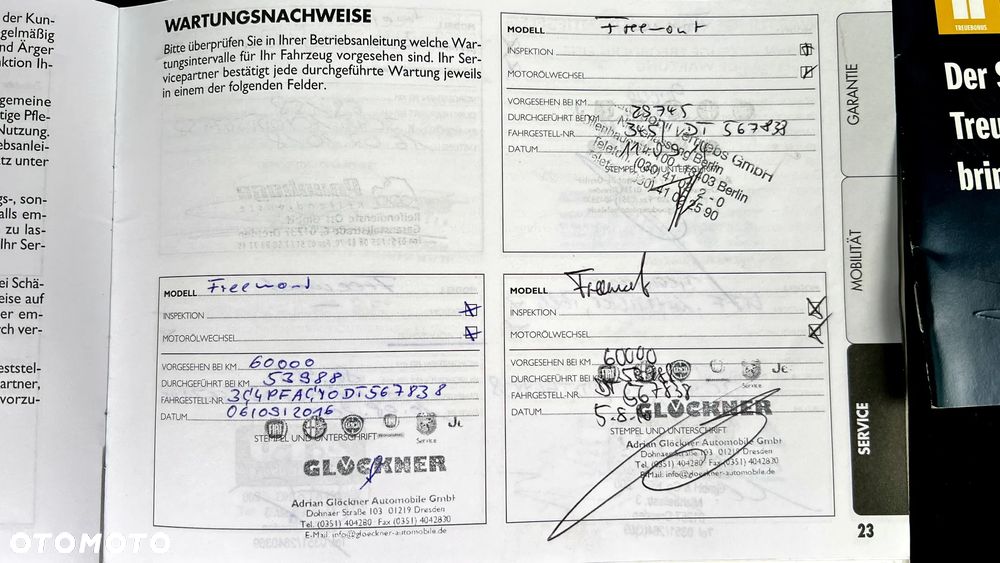 der Kun-
gelmäßig
nd Ärger
ktion Ih-
gemeine
tige Pfle-
Nutzung.
ebsanlei-
tz unter
gs-, son-
alls em-
zu las-
Ihr Ser-
ei Schä-
eise auf
er em-
ch ver-
eststel-
artner,
vorzu-
WARTUNGSNACHWEISE
Bitte überprüfen Sie in Ihrer Betriebsanleitung welche War-
tungsintervalle für Ihr Fahrzeug vorgesehen sind. Ihr Ser-
vicepartner bestätigt jede durchgeführte Wartung jeweils
in einem der folgenden Felder.
MODELL Freemont
INSPEKTION
MOTORÖLWECHSEL
VORGESEHEN BEI KM
DURCHGEFÜHRT BEI KM 28745
FAHRGESTELL-NR. DT 567838
DATUM
STEMPEL UND UNTERSCHRIFT
Vertriebs GmbH
Niederlassung Berlin
Berlin
Telefon (030) 41
MODELL Freemond
INSPEKTION
MOTORÖLWECHSEL
VORGESEHEN BEI KM 60000
DURCHGEFÜHRT BEI KM 53988
FAHRGESTELL-NR. 3C4PFACY0DT567838
DATUM 06/09/2016
STEMPEL UND UNTERSCHRIFT
Service
GLÖCKNER
Adrian Glöckner Automobile GmbH
Dohnaer Straße 103 01219 Dresden
Tel. (0351) 404280 Fax (0351) 4042830
E-Mail: info@gloeckner-automobile.de
MODELL Freemont
INSPEKTION
MOTORÖLWECHSEL
VORGESEHEN BEI KM 60000
DURCHGEFÜHRT BEI KM
FAHRGESTELL-NR. DT 567838
DATUM
Service
GLÖCKNER
STEMPEL UND UNTERSCHRIFT
Adrian Glöckner Automobile GmbH
Dohnaer Straße 103 01219 Dresden
Tel. (0351) 404280 Fax (0351) 4042830
E-Mail: info@gloeckner-automobile.de
GARANTIE
MOBILITÄT
SERVICE
23
TREUEBONUS
Der S
Treu
brin
OTOMOTO